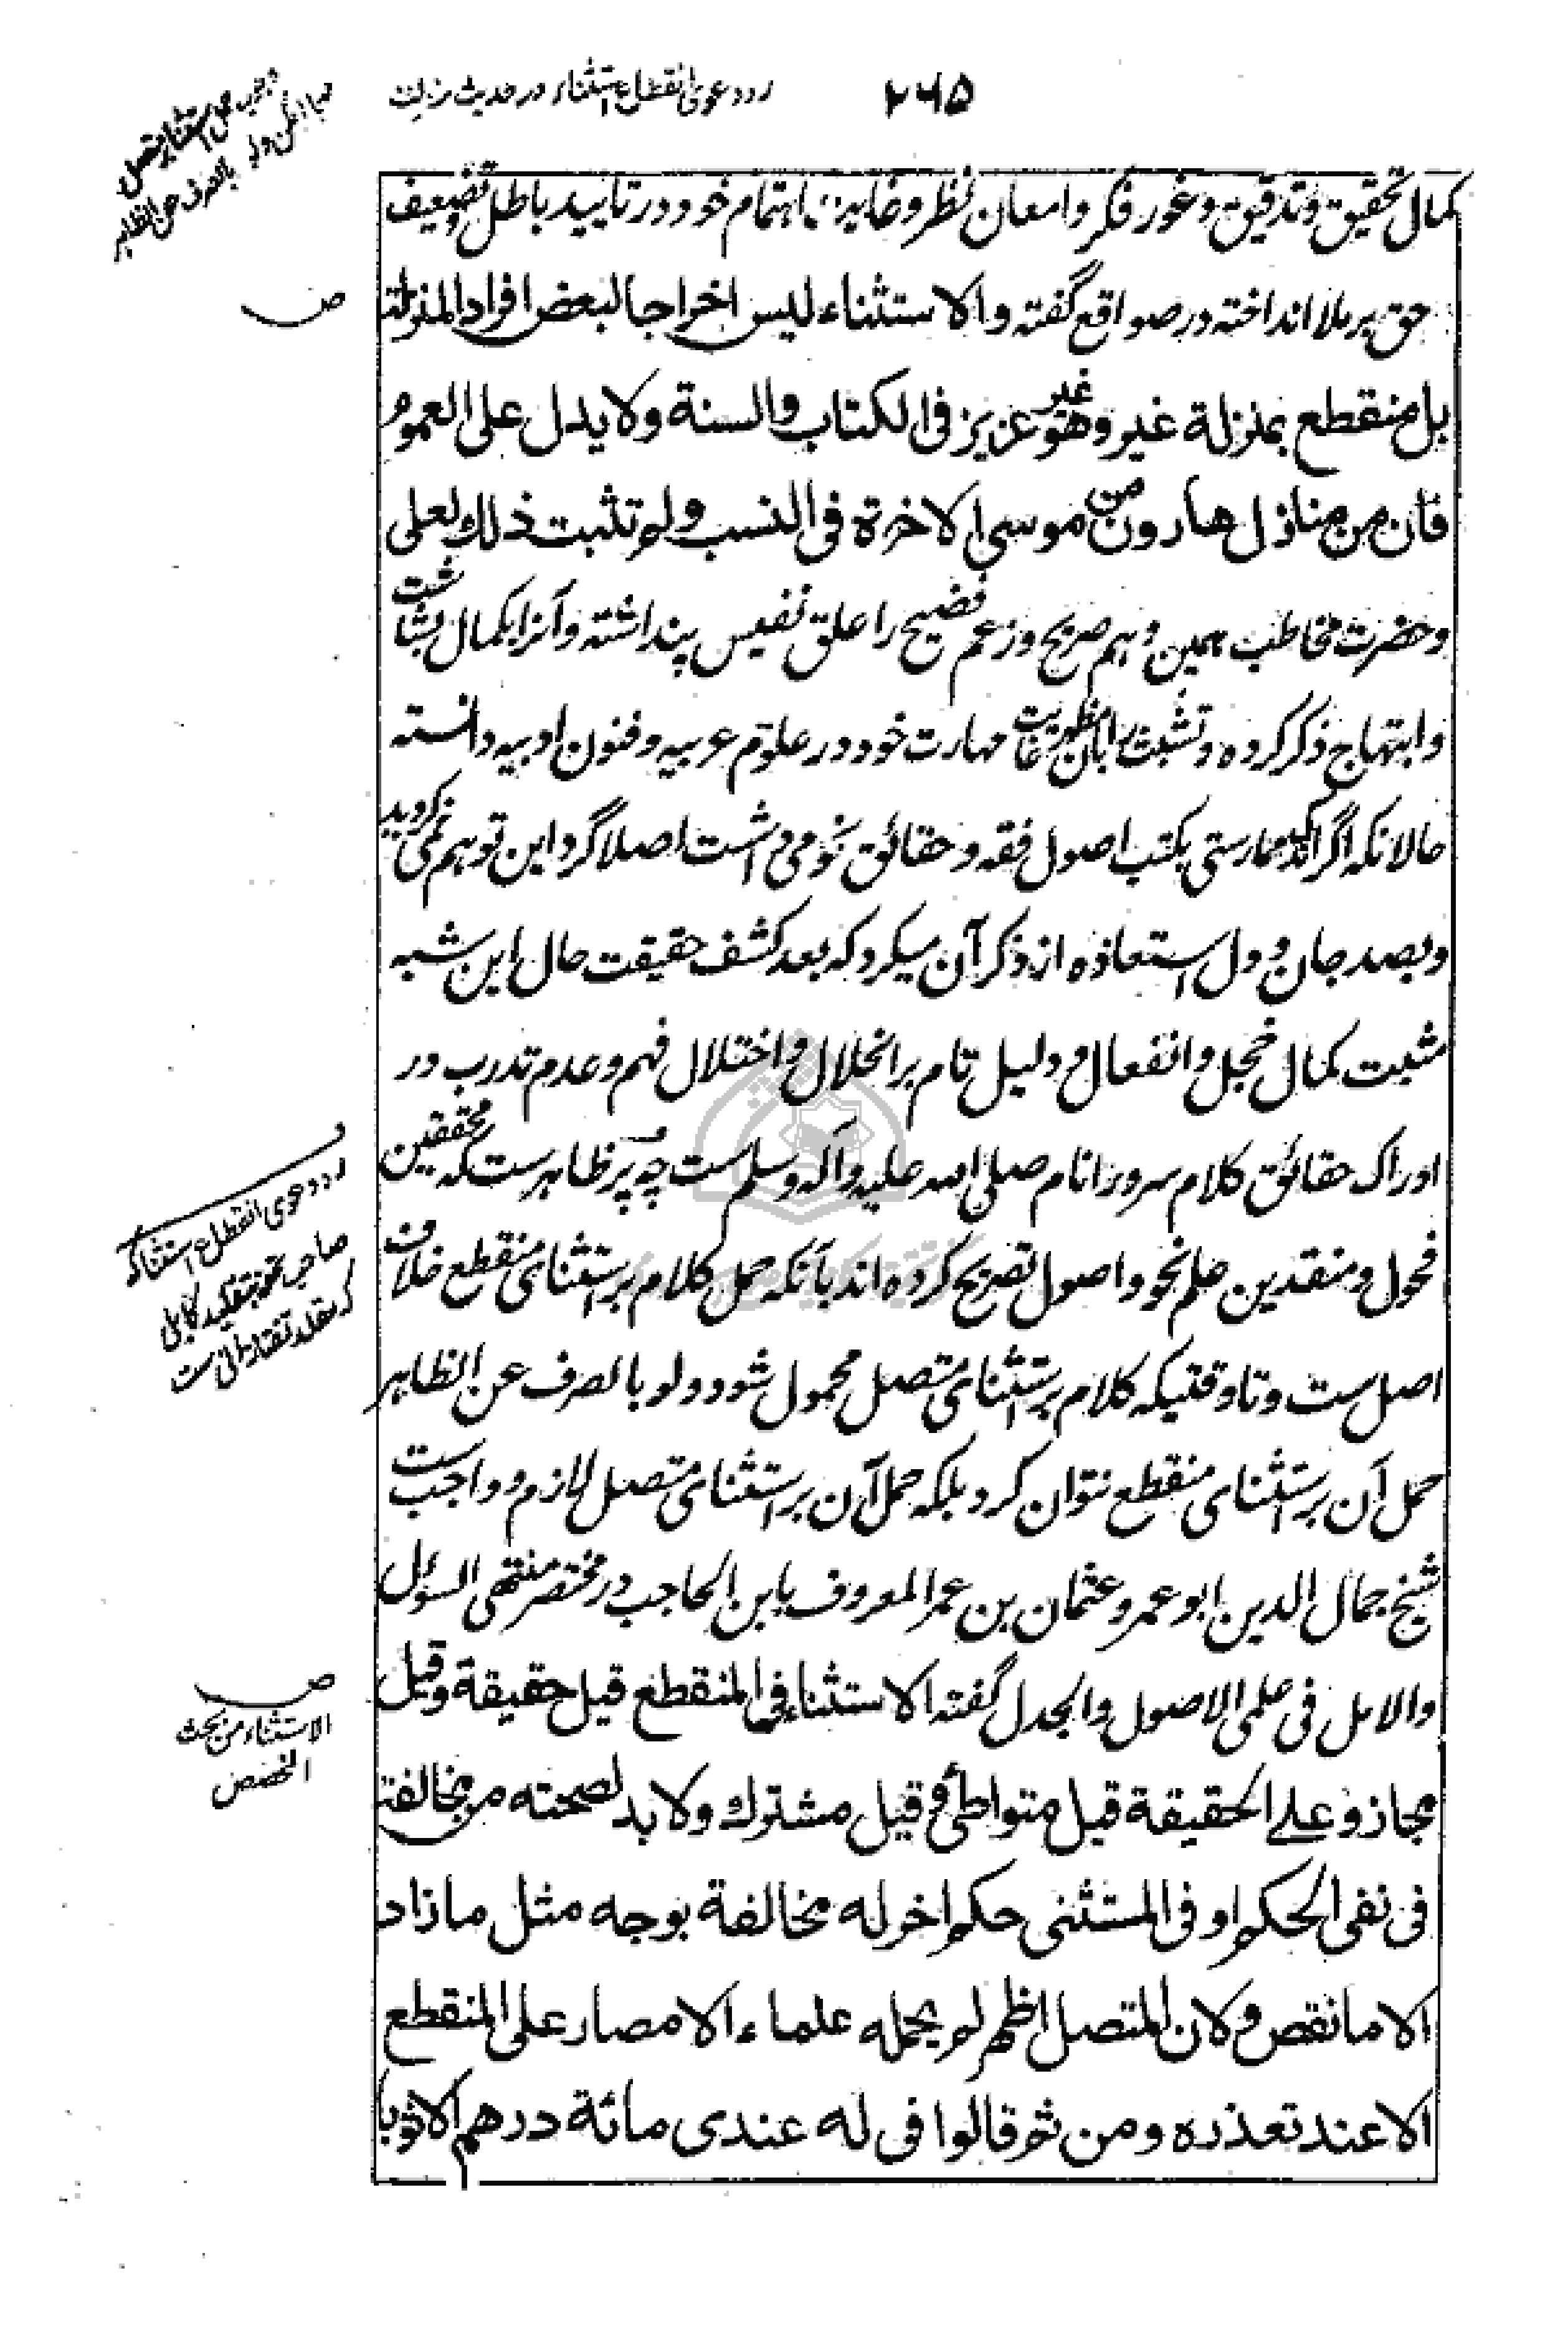 ۲۶۵
رد دعوی انقطاع استثناء در حدیث منزلت
کمال تحقیق و تدقیق و غور فکر و امعان نظر و غایة اهتمام خود در تایید باطل و تضعیف
حق بر ملا انداخته در صواقع گفته والاستثناء لیس اخراجا لبعض افراد المنزلة
بل منقطع بمنزلة غیر وهو غیر عزیز فی الکتاب والسنة ولا یدل علی العموم
فان من منازل هارون من موسی الاخوة فی النسب ولم تثبت ذلک لعلی
و حضرت مخاطب همین وهم صریح و زعم فضیح را علق نفیس پنداشته و آنرا بکمال بشاشت
و ابتهاج ذکر کرده و تشبث را بآن مظهر غایت مهارت خود در علوم عربیه و فنون ادبیه دانسته
حالانکه اگر اندک ممارستی بکتب اصول فقه و حقائق نحو می داشت اصلا گرد این توهم نمی گردید
و بصد جان و دل استعاذه از ذکر آن میکرد که بعد کشف حقیقت حال این شبه
مثبت کمال خجل و انفعال و دلیل تام بر انحلال و اختلال فهم و عدم تدرب در
ادراک حقائق کلام سرور انام صلی الله علیه و آله و سلم ست چه پر ظاهرست که محققین
فحول و منقدین علم نحو و اصول تصریح کرده اند بآنکه حمل کلام بر استثنای منقطع خلاف
اصل ست و تا وقتیکه کلام بر استثنای متصل محمول شود و لو بالصرف عن الظاهر
حمل آن بر استثنای منقطع نتوان کرد بلکه حمل آن بر استثنای متصل لازم و واجب ست
شیخ جمال الدین ابو عمرو عثمان بن عمر المعروف بابن الحاجب در مختصر منتهی السؤل
والامل فی علمی الاصول والجدل گفته الاستثناء فی المنقطع قیل حقیقة وقیل
مجاز وعلی الحقیقة قیل متواطئ وقیل مشترک ولا بد لصحته من مخالفة
فی نفی الحکم او فی المستثنی حکم اخر له مخالفة بوجه مثل ما زاد
الا ما نقص ولان المتصل اظهر لم یحمله علماء الامصار علی المنقطع
الا عند تعذره ومن ثم قالوا فی له عندی مائة درهم الا ثوبا
ص
رد دعوی انقطاع استثنا که
صاحب تحفه بتقلید کابلی
که مقلد تفتازانی ست
ص
الاستثناء من بحث
التخصص